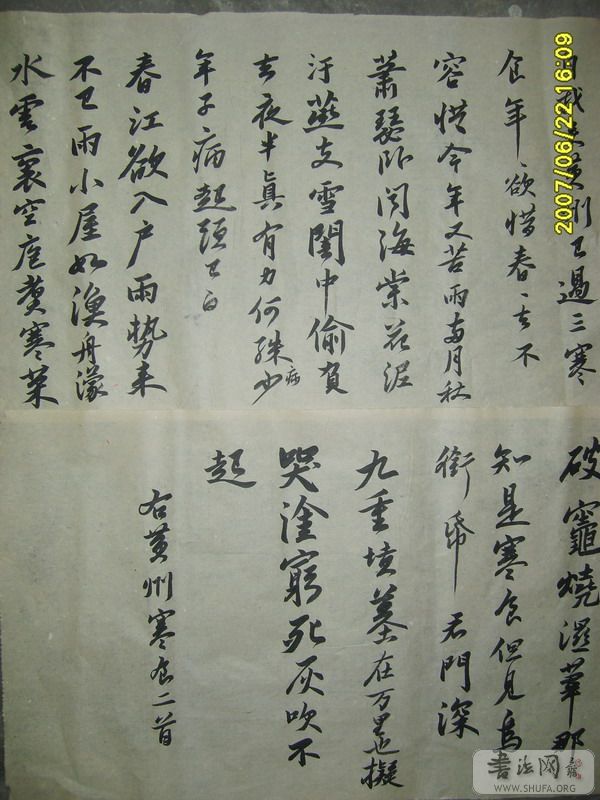 自我来黄州已過三寒
食年〻欲惜春〻去不
容惜今年又苦雨兩月秋
蕭瑟卧聞海棠花泥
汙燕支雪闇中偷負
去夜半真有力何殊少病
年子病起頭已白
春江欲入户雨勢来
不已雨小屋如漁舟濛
水雲裏空庖煑寒菜
破竈燒濕葦那
知是寒食但見烏
銜帋君門深
九重墳墓在万里也擬
哭塗窮死灰吹不
起
右黄州寒食二首
2007/06/22 16:09
書法网
WWW.SHUFA.ORG